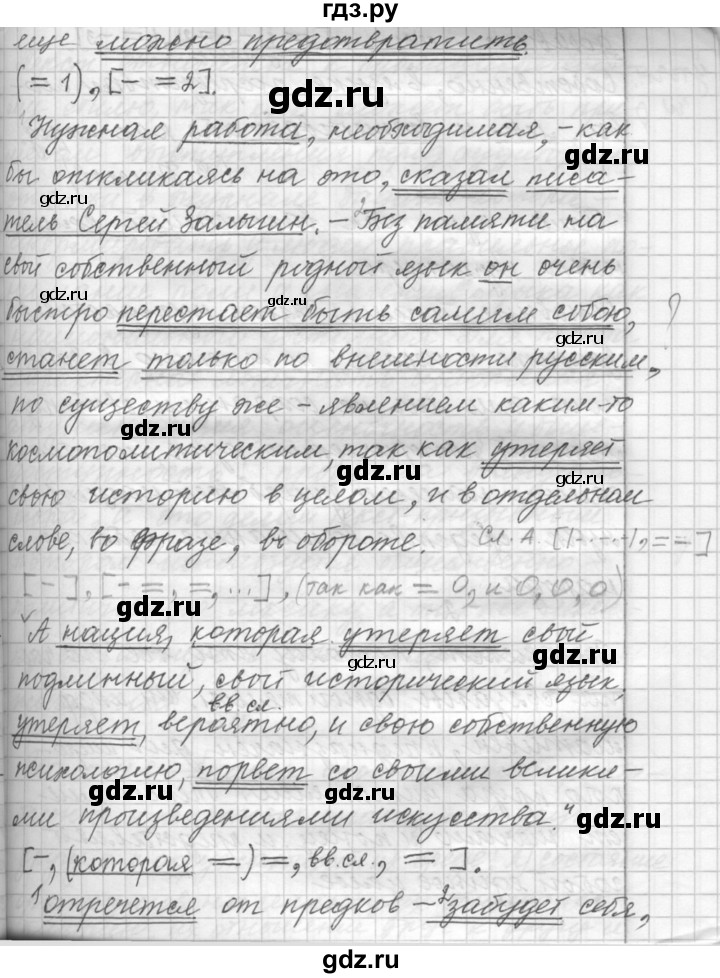 гдз.ру
еще можно предотвратить.
(= 1), [– = 2].
gdz.ru
Нужная работа, необходимая, – как
gdz.ru
бы откликаясь на это, сказал писа–
gdz.ru
gdz.ru
тель Сергей Залыгин. – ²Без памяти на
gdz.ru
свой собственный родной язык он очень
gdz.ru
быстро перестает быть самим собою, ?
gdz.ru
станет только по внешности русским,
по существу же – явлением каким-то
gdz.ru
космополитическим, так как утеряет
gdz.ru
gdz.ru
свою историю в целом, и в отдельном
слове, во фразе, в обороте. Сл. А. [|-·-·-|, = =]
gdz.ru
[ – ], [ – =, =, ...], (так как = О, и О, О, О)
gdz.ru
А нация, которая утеряет свой
gdz.ru
gdz.ru
подлинный, свой исторический язык,
вв. сл.
gdz.ru
утеряет, вероятно, и свою собственную
психологию, порвет со своими велики–
gdz.ru
gdz.ru
ми произведениями искусства."
gdz.ru
[–, (которая =) =, вв. сл., = ].
gdz.ru
¹отречется от предков – ²забудет себя,
gdz.ru